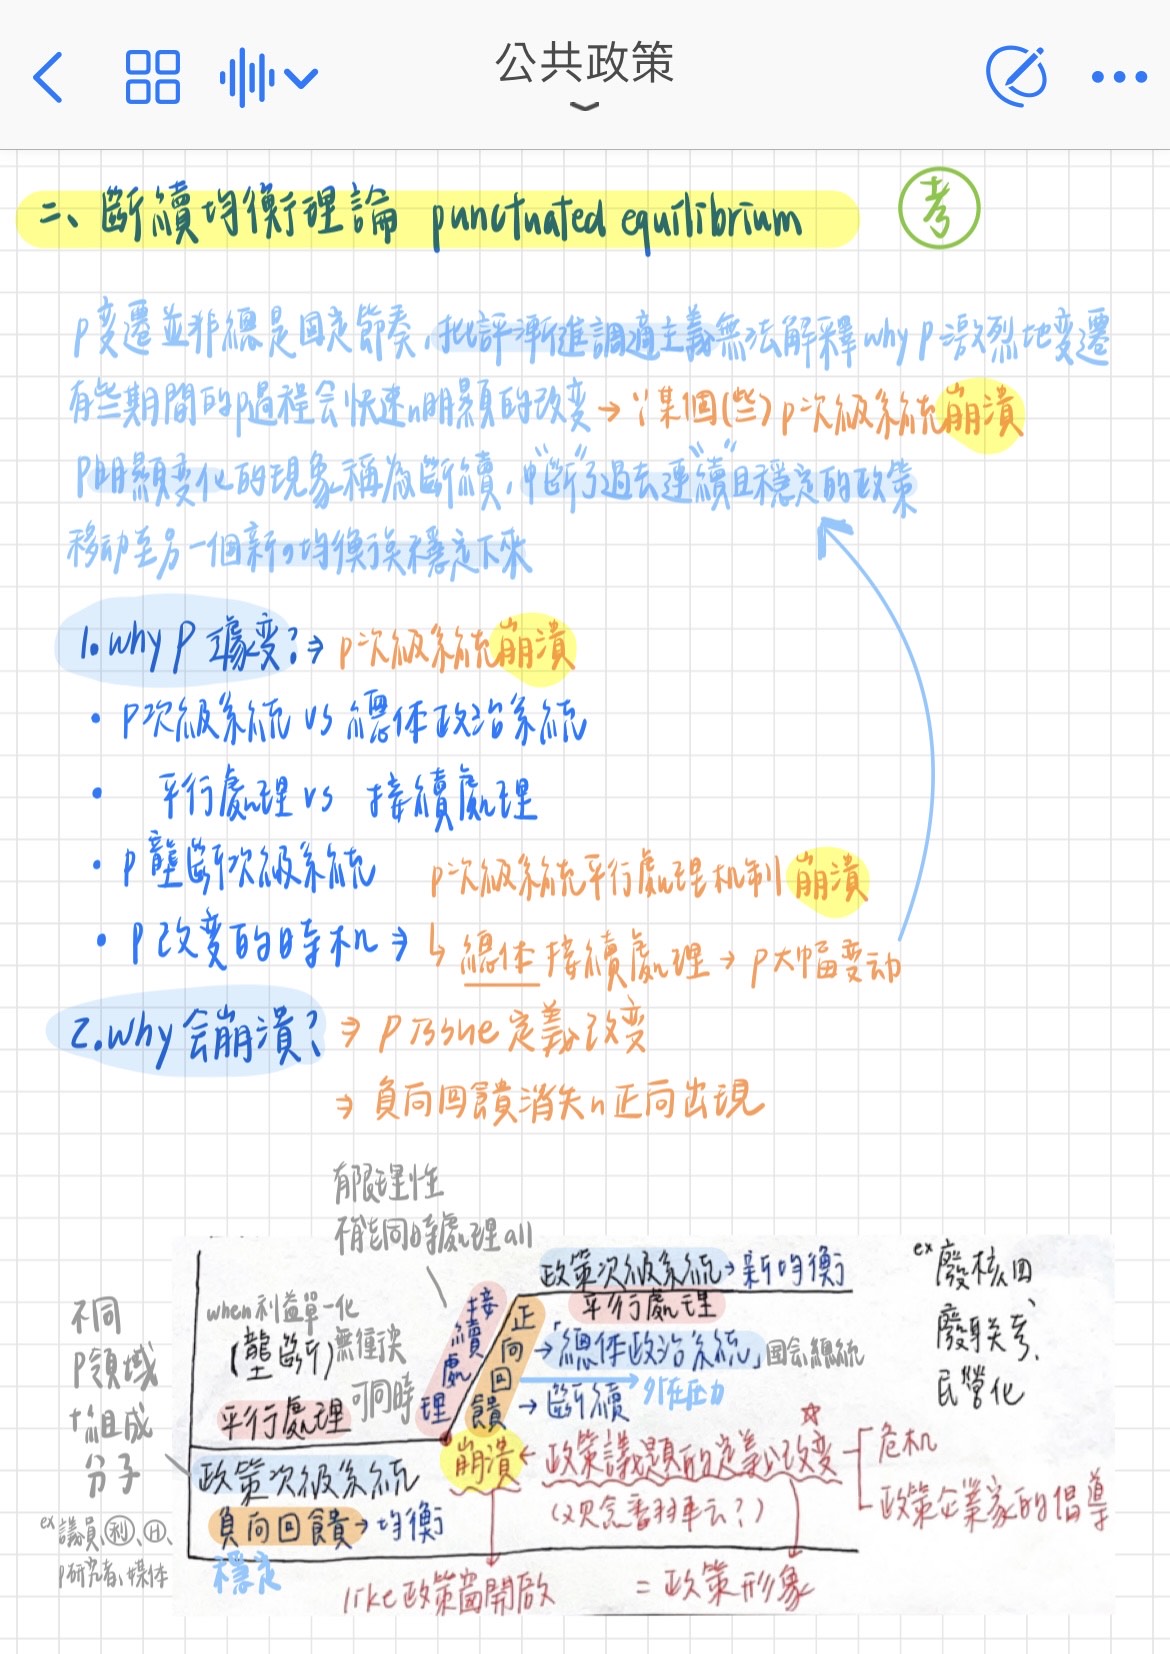 公共政策
二、斷續均衡理論 punctuated equilibrium
考
P变遷並非總是固定節奏,批評漸進調適主義無法解釋why P激烈地变遷
有些期間的P過程会快速n明顯的改变→ ∵某個(些)P次級系統崩潰
P明顯变化的現象稱為斷續,中"斷"了過去連"續"且穩定的政策
移动至另一個新的均衡候穩定下來
1.why P 遽变?⇒ P次級系統崩潰
• P次級系統 vs 總体政治系統
• 平行處理 vs 接續處理
• P壟斷次級系統 P次級系統平行處理机制崩潰
• P改变的時机⇒ ↳總体接續處理→P大幅变动
2.why会崩潰? ⇒ P issue定義改变
⇒ 負向回饋消失n正向出現
有限理性
不能同時處理all
政策次級系統→新均衡
平行處理
ex 廢核四、
廢聯考、
民營化
不同
P領域
組成
分子
ex 議員、利、H、
P研究者、媒体
when利益單一化
(壟斷)無種決
可同時
平行處理
接續處理
正向回饋
→「總体政治系統」国会總統
外在压力
→斷續
崩潰←政策議題的定義改变
危机
政策企業家的倡導
政策次級系統
負向回饋→均衡
穩定
like政策窗開啟
=政策形象